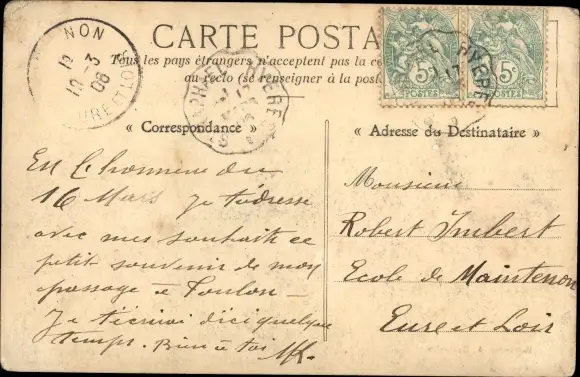 CARTE POSTA
Tous les pays étrangers n'acceptent pas la co
au recto (se renseigner à la posta
NON
19
10 3
08
EURE ET LOIR
5c 5c
POSTES POSTES
« Correspondance »
« Adresse du Destinataire »
En l'honneur du
16 Mars je t'adresse
avec mes souhaits ce
petit souvenir de mon
passage à Toulon -
Je t'écrirai d'ici quelque
temps. Bien à toi
Monsieur
Robert Imbert
Ecole de Maintenon
Eure et Loir